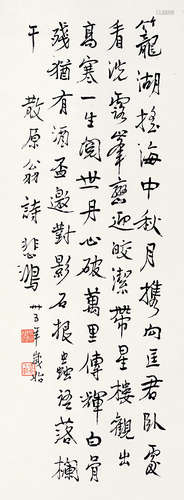 籠湖搖海中秋月攜向匡君臥處
看洗露峯巒迎皎潔帶星樓觀出
高寒一生閱世丹心破萬里傳輝白骨
殘猶有酒盃邀對影石根蟲語落欄
干 散原翁詩 悲鴻 卅五年歲始